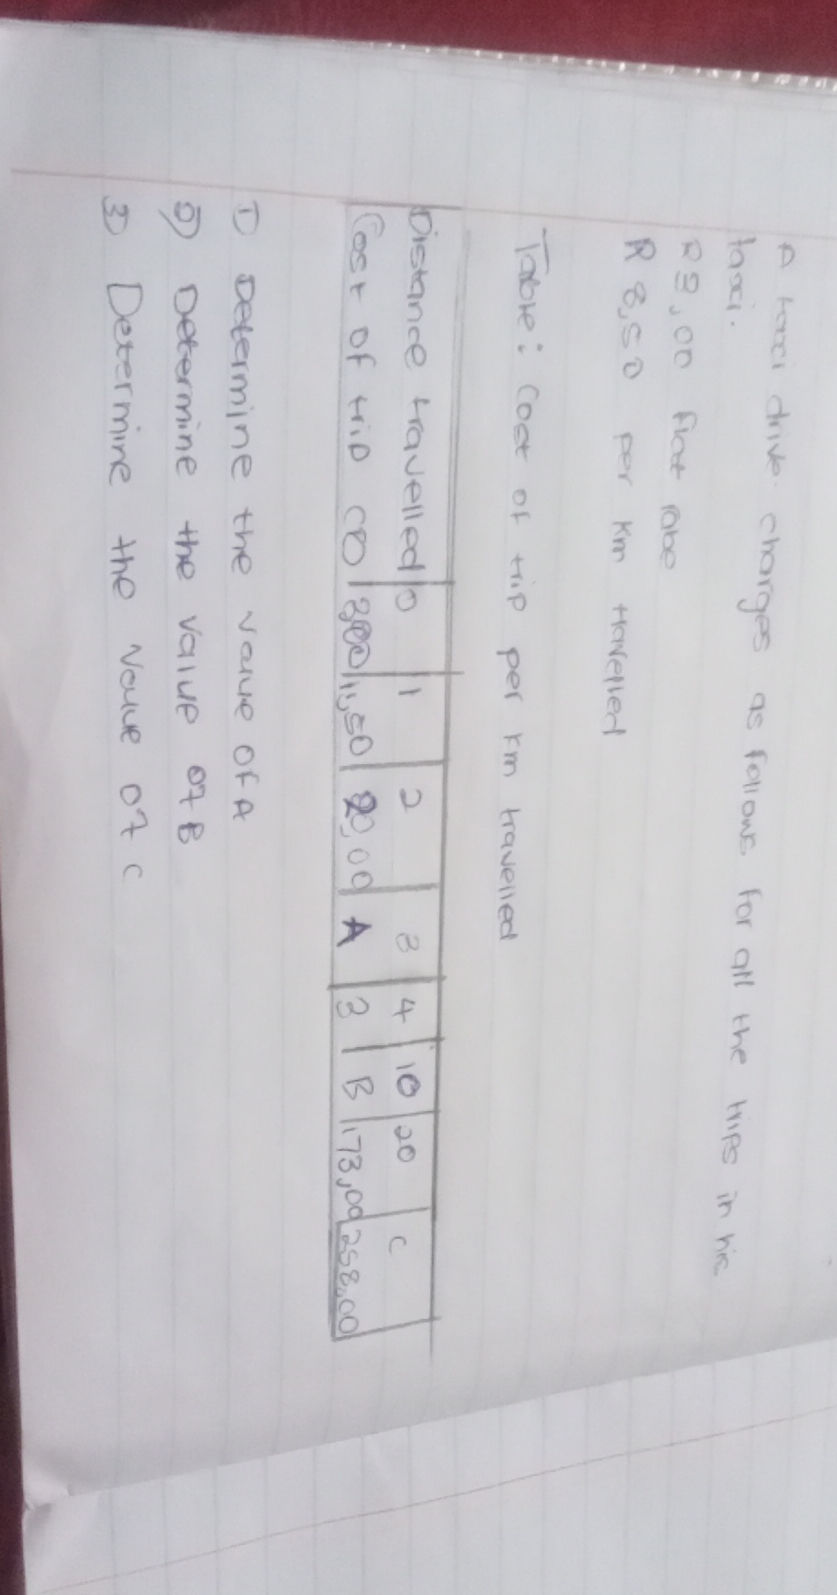 A taxi drive charges as follows for all the trips in his
taxi.
R3,00 flat rate
R 8,50 per km travelled
Table: Cost of trip per km travelled
Distance travelled 0 1 2 3 4 10 20 C
Cost of trip (R) 3,00 11,50 20,00 A 3 B 173,00 258,00
① Determine the value of A
2) Determine the value of B
3) Determine the value of C